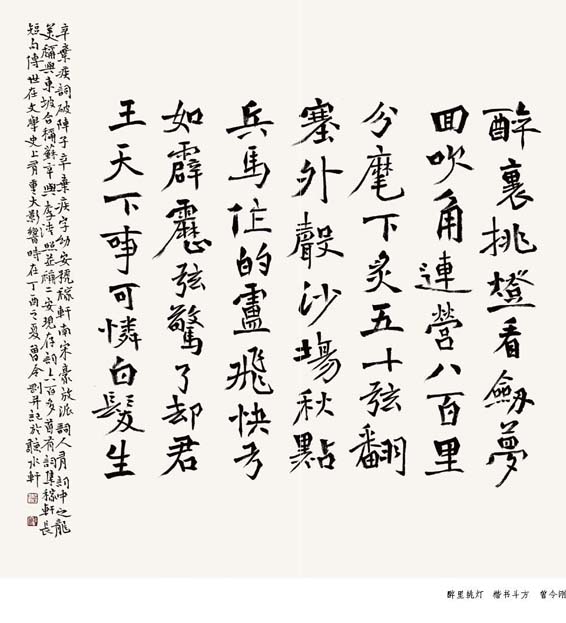 醉裏挑燈看劍夢
回吹角連營八百里
分麾下炙五十弦翻
塞外聲沙場秋點
兵馬作的盧飛快弓
如霹靂弦驚了却君
王天下事可憐白髮生
辛棄疾詞破陣子辛棄疾字幼安號稼軒南宋豪放派詞人有詞中之龍
美稱與東坡合稱蘇辛與李清照並稱二安現存詞六百多首有詞集稼軒長
短句傳世在文學史上有重大影響時在丁酉之夏曾今剛并記於水軒
醉里挑灯 楷书斗方 曾今刚